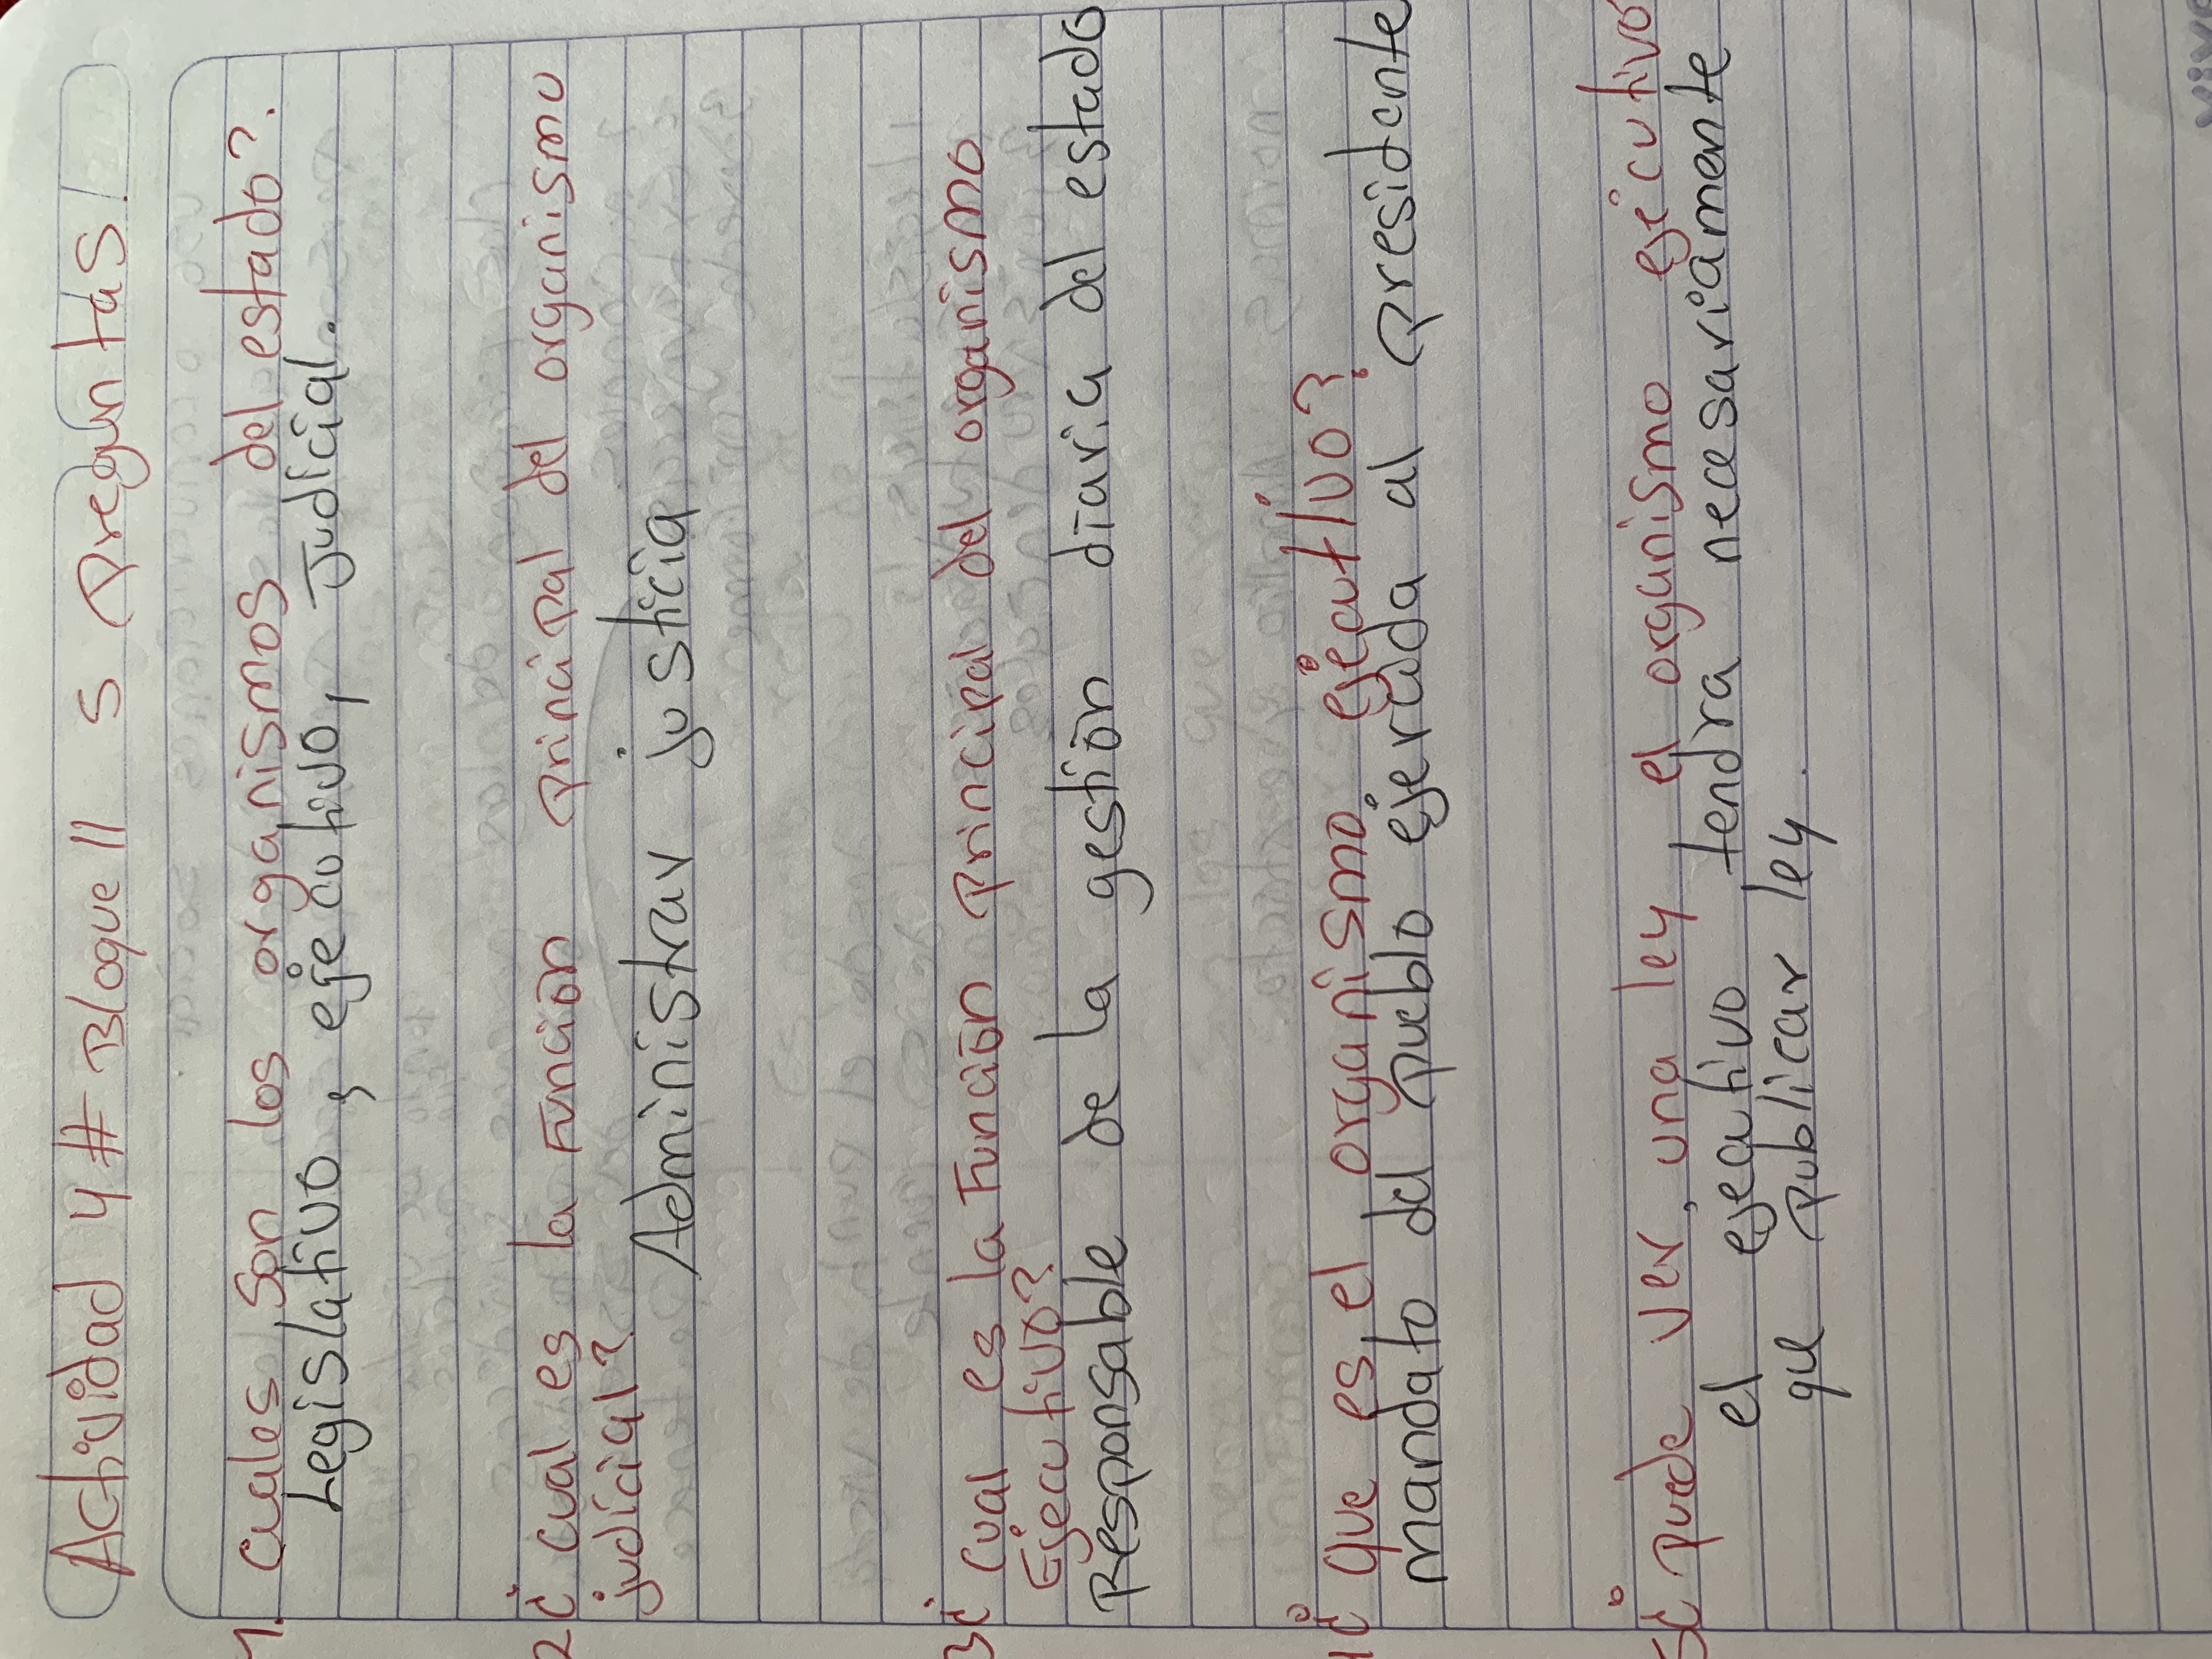 Actividad 4 # Bloque II 5 Preguntas!
1. Cuales son los organismos del estado?.
Legislativo, ejecutivo, Judicial.
2¿ cual es la Función principal del organismo
judicial?
Administrar justicia
3¿ cual es la Función principal del organismo
Ejecutivo?
Responsable de la gestión diaria del estado
4¿ que es el organismo ejecutivo?
mandato del pueblo ejercida al presidente
5¿ puede ver, una ley el organismo ejecutivo
el ejecutivo tendra necesariamente
que publicar ley.